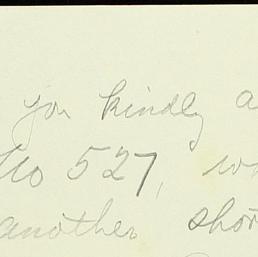 you kindly a
No 527, w
another shor